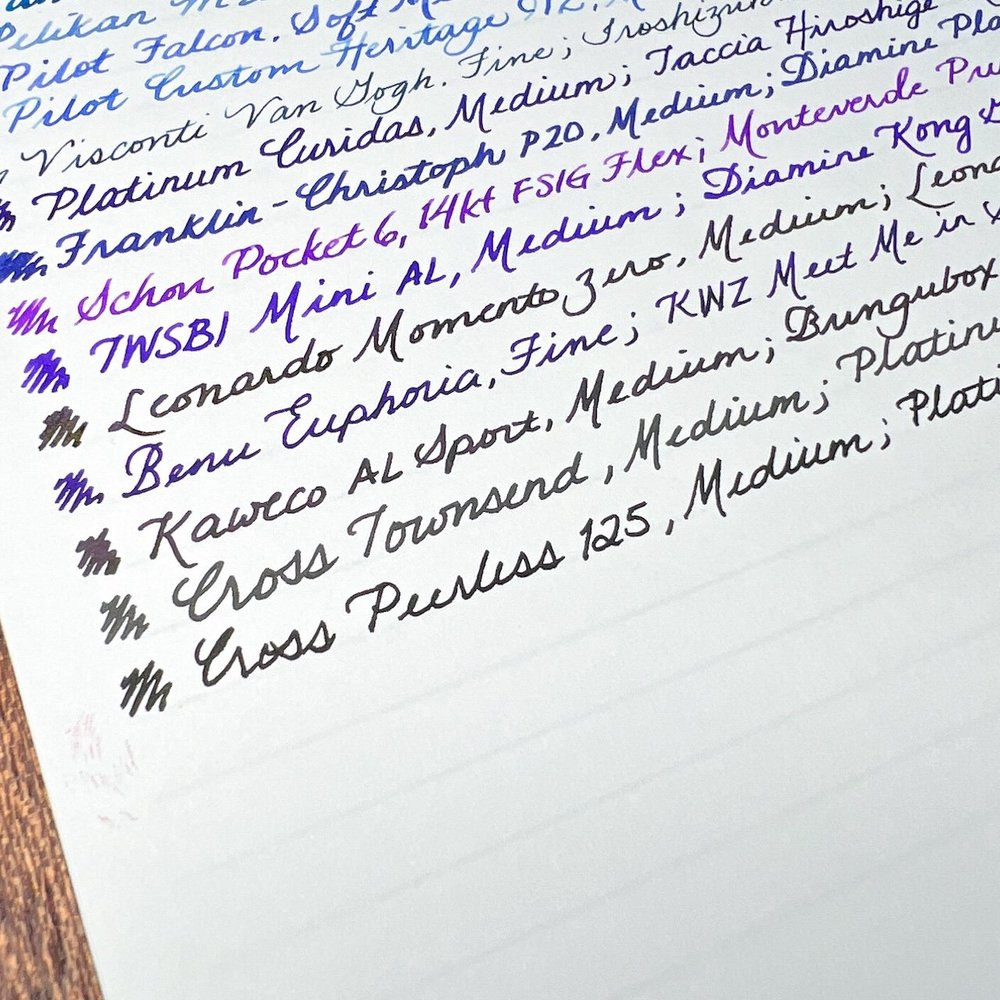 Pelikan
Pilot Falcon, Soft
Pilot Custom Heritage 912,
Visconti Van Gogh. Fine; Iroshizuku
Platinum Curidas, Medium; Taccia Hiroshige
Franklin-Christoph P20, Medium; Diamine
Schon Pocket 6, 14kt FSIG Flex; Monteverde
TWSBI Mini AL, Medium; Diamine Kong
Leonardo Momento Zero, Medium;
Benu Euphoria, Fine; KWZ Meet Me in
Kaweco AL Sport, Medium; Bungubox
Cross Townsend, Medium;
Cross Peerless 125, Medium;